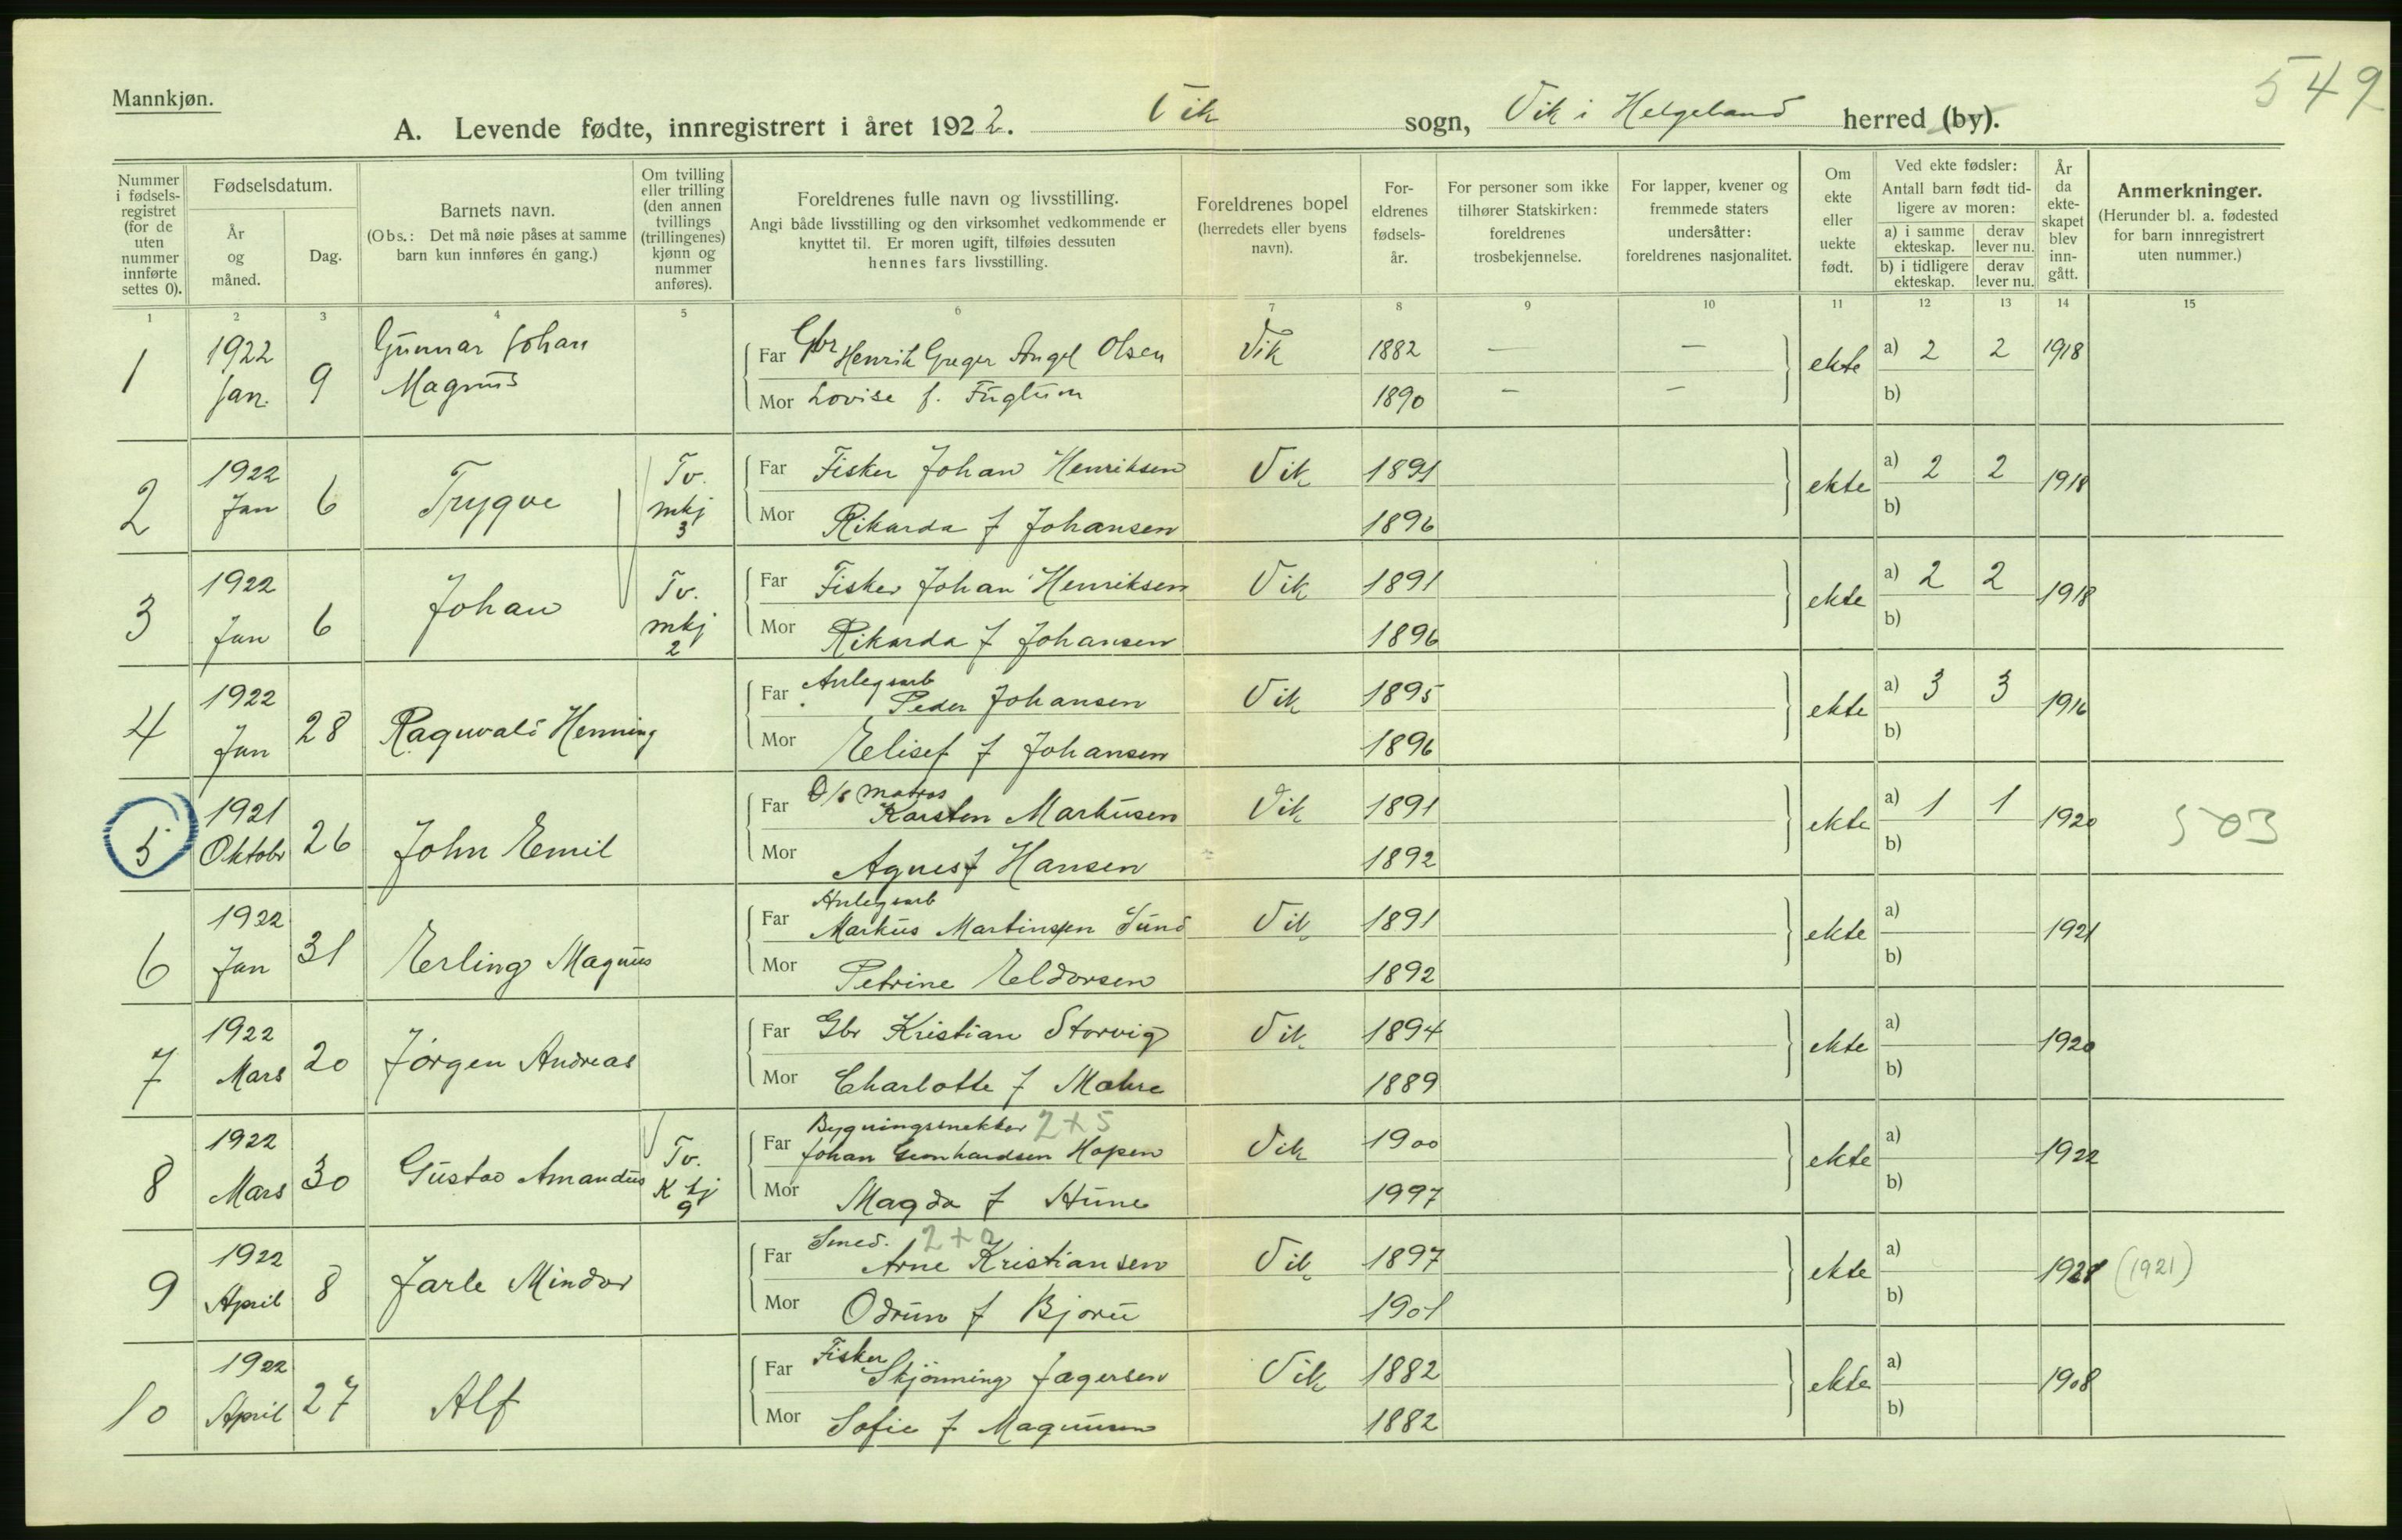 549
Mannkjøn.
A. Levende fødte, innregistrert i året 1922. Vik sogn, Vik i Helgeland herred (by).
Nummer i fødsels-registret (for de uten nummer innførte settes 0).
Fødselsdatum.
År og måned.
Dag.
Barnets navn.
(Obs.: Det må nøie påses at samme barn kun innføres én gang.)
Om tvilling eller trilling (den annen tvillings (trillingenes) kjønn og nummer anføres).
Foreldrenes fulle navn og livsstilling.
Angi både livsstilling og den virksomhet vedkommende er knyttet til. Er moren ugift, tilføies dessuten hennes fars livsstilling.
Foreldrenes bopel (herredets eller byens navn).
For-eldrenes fødsels-år.
For personer som ikke tilhører Statskirken: foreldrenes trosbekjennelse.
For lapper, kvener og fremmede staters undersåtter: foreldrenes nasjonalitet.
Om ekte eller uekte født.
Ved ekte fødsler: Antall barn født tid-ligere av moren:
a) i samme ekteskap. derav lever nu.
b) i tidligere ekteskap. derav lever nu.
År da ekte-skapet blev inn-gått.
Anmerkninger.
(Herunder bl. a. fødested for barn innregistrert uten nummer.)
1 2 3 4 5 6 7 8 9 10 11 12 13 14 15
1 1922 Jan. 9 Gunnar Johan Magnus Far Gbr Henrik Greger Angel Olsen Vik 1882 — — ekte a) 2 2 1918
Mor Lovise f. Fuglum 1890 — — b)
2 1922 Jan 6 Trygve Tv. mkj 3 Far Fisker Johan Henriksen Vik 1891 ekte a) 2 2 1918
Mor Rikarda f Johansen 1896 b)
3 1922 Jan 6 Johan Tv. mkj 2 Far Fisker Johan Henriksen Vik 1891 ekte a) 2 2 1918
Mor Rikarda f Johansen 1896 b)
4 1922 Jan 28 Ragnvald Henning Far Anlegsarb Peder Johansen Vik 1895 ekte a) 3 3 1916
Mor Elisef f Johansen 1896 b)
5 1921 Oktobr 26 John Emil Far D/s matros Karsten Markusen Vik 1891 ekte a) 1 1 1920 503
Mor Agnes f Hansen 1892 b)
6 1922 Jan 31 Erling Magnus Far Anlegsarb Markus Martinsen Sund Vik 1891 ekte a) 1921
Mor Petrine Eldorsen 1892 b)
7 1922 Mars 20 Jørgen Andreas Far Gbr Kristian Storvig Vik 1894 ekte a) 1920
Mor Charlotte f 1889 b)
8 1922 Mars 30 Gustav Amandus Tv. K kj 9 Far Bygningssnekker 2+5 Johan Hopen Vik 1900 ekte a) 1922
Mor Magda f 1997 b)
9 1922 April 8 Jarle Mindor Far Smed. 2+0 Arne Kristiansen Vik 1897 ekte a) 1921 (1921)
Mor Odrun f Bjoru 1901 b)
10 1922 April 27 Alf Far Fisker Skjønning Jagersen Vik 1882 ekte a) 1908
Mor Sofie f. Magnusen 1882 b)